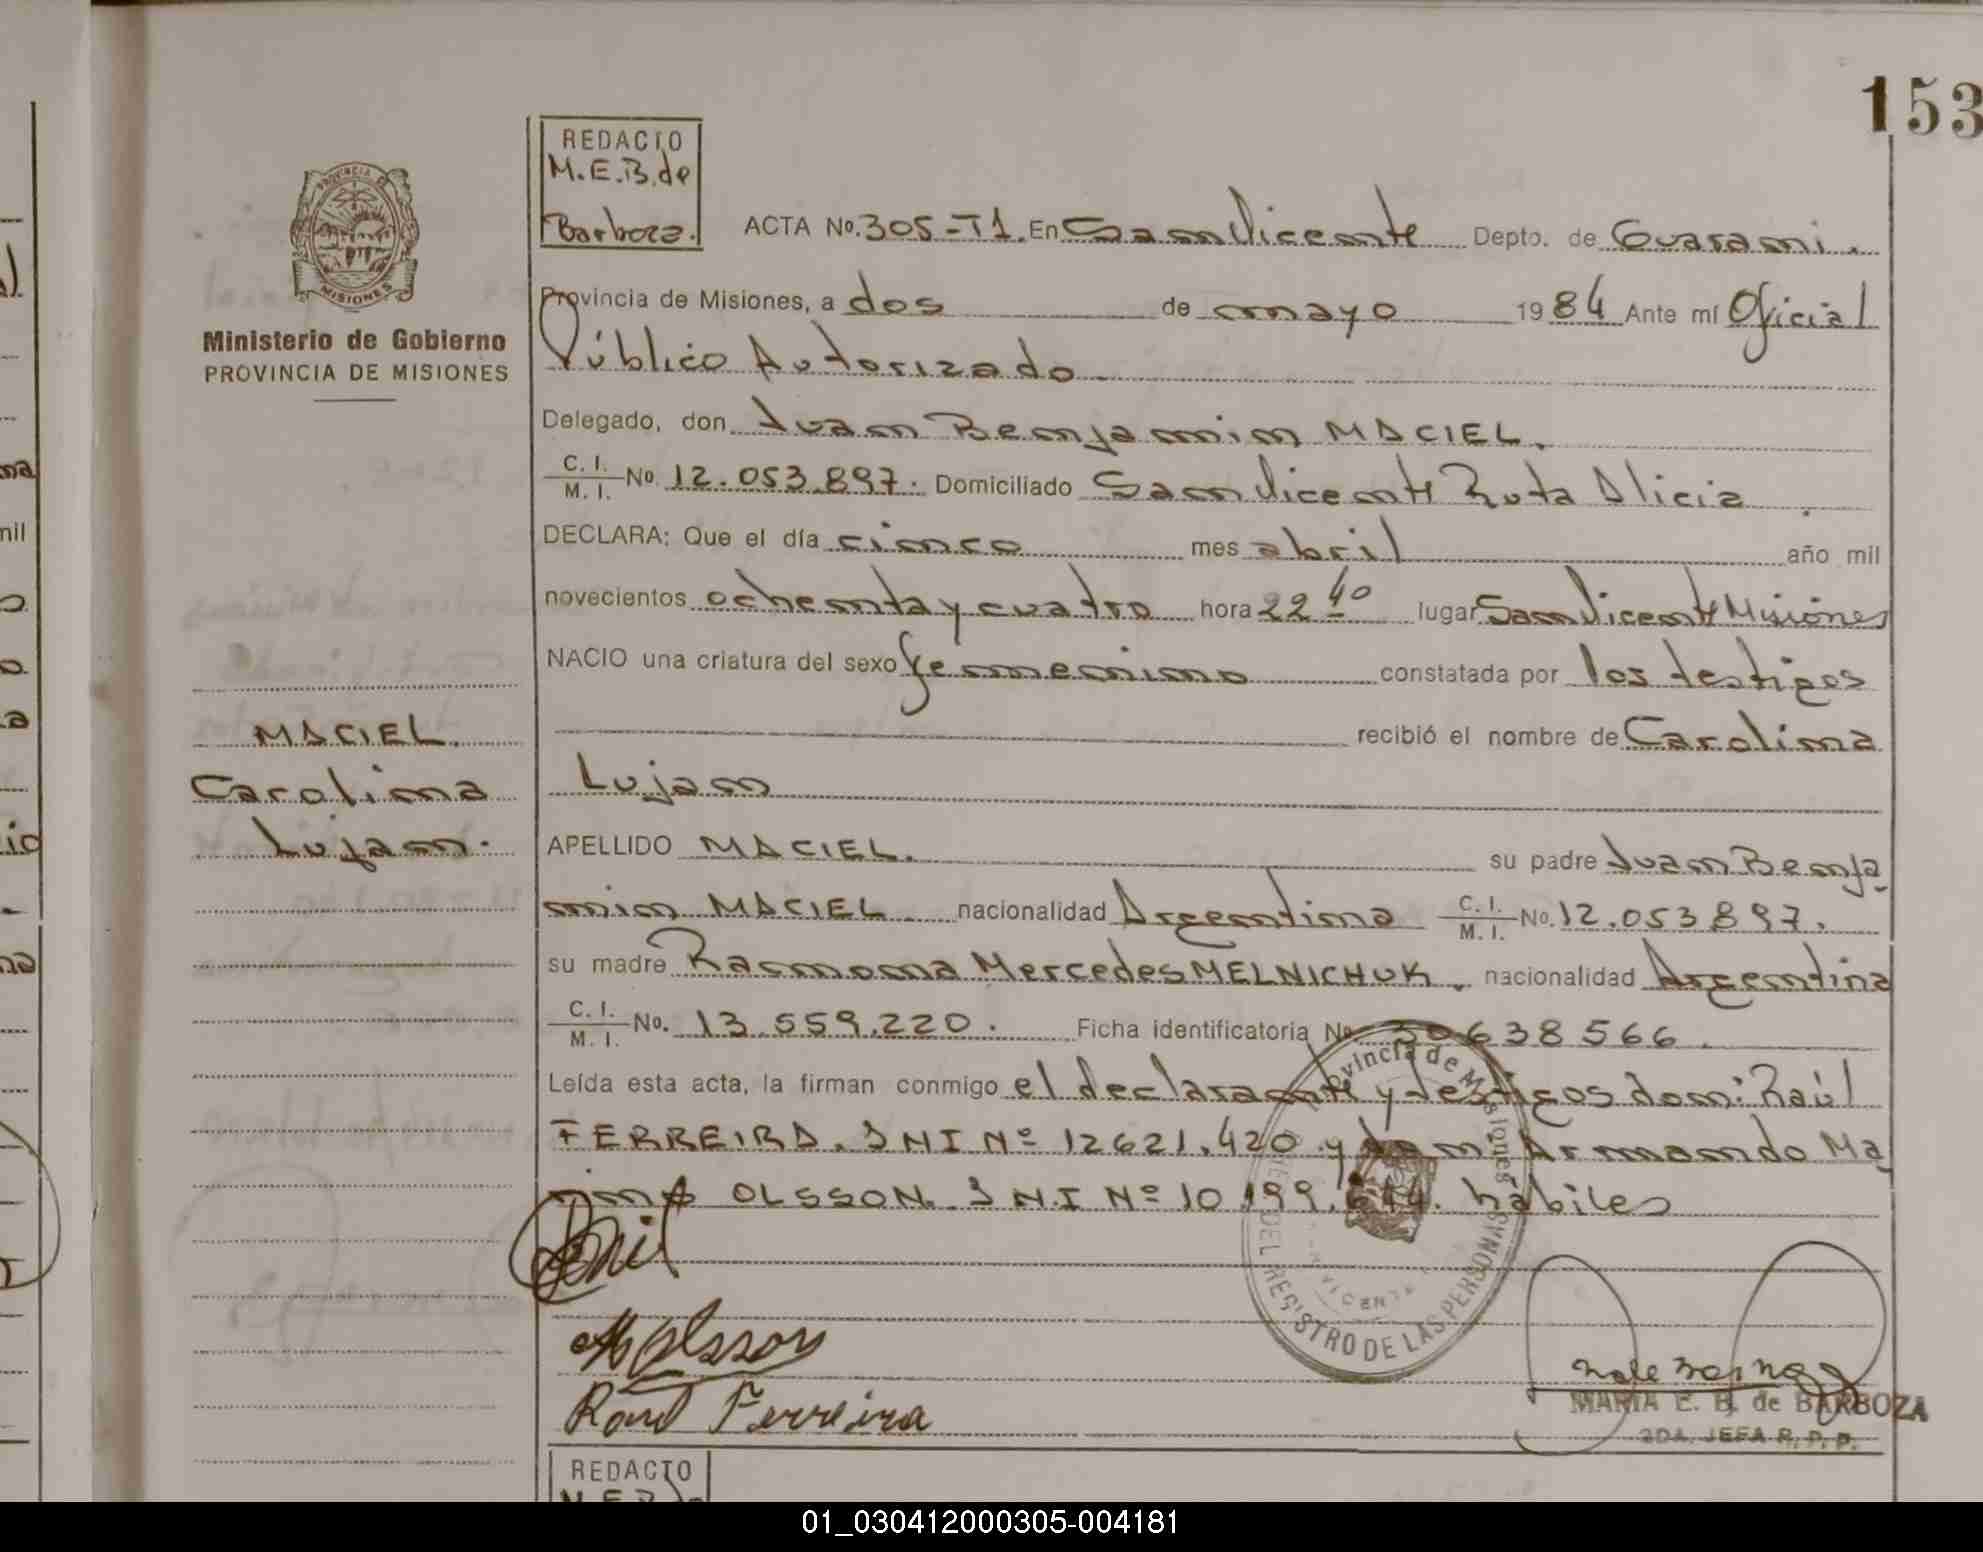 153
REDACTO
M.E.B. de
Barboza.
PROVINCIA DE
MISIONES
Ministerio de Gobierno
PROVINCIA DE MISIONES
ACTA No. 305-T1. En San Vicente Depto. de Guarani.
Provincia de Misiones, a dos de mayo 1984 Ante mí Oficial
Público Autorizado
Delegado, don Juan Benjamin MACIEL.
C. I. / M. I. No 12.053.897. Domiciliado San Vicente Ruta Alicia
DECLARA: Que el día cinco mes abril año mil
novecientos ochenta y cuatro hora 22 40 lugar San Vicente Misiones
NACIO una criatura del sexo femenino constatada por los testigos
recibió el nombre de Carolina
Lujan
MACIEL.
Carolina
Lujan.
APELLIDO MACIEL. su padre Juan Benja
min MACIEL nacionalidad Argentina C. I. / M. I. No. 12.053.897.
su madre Ramona Mercedes MELNICHUK. nacionalidad Argentina
C. I. / M. I. No. 13.559.220. Ficha identificatoria No. 30638566.
Leída esta acta, la firman conmigo el declarante y testigos don: Raúl
FERREIRA. DNI Nº 12621.420 y don: Armando Ma
OLSSON. D.N.I Nº 10.199. hábiles
Provincia de Misiones
DEL REGISTRO DE LAS PERSONAS
VICENTE
Olsson
Raul Ferreira
MARIA E. B. de BARBOZA
2DA. JEFA R. P. P.
REDACTO
M.E.B. de
01_030412000305-004181